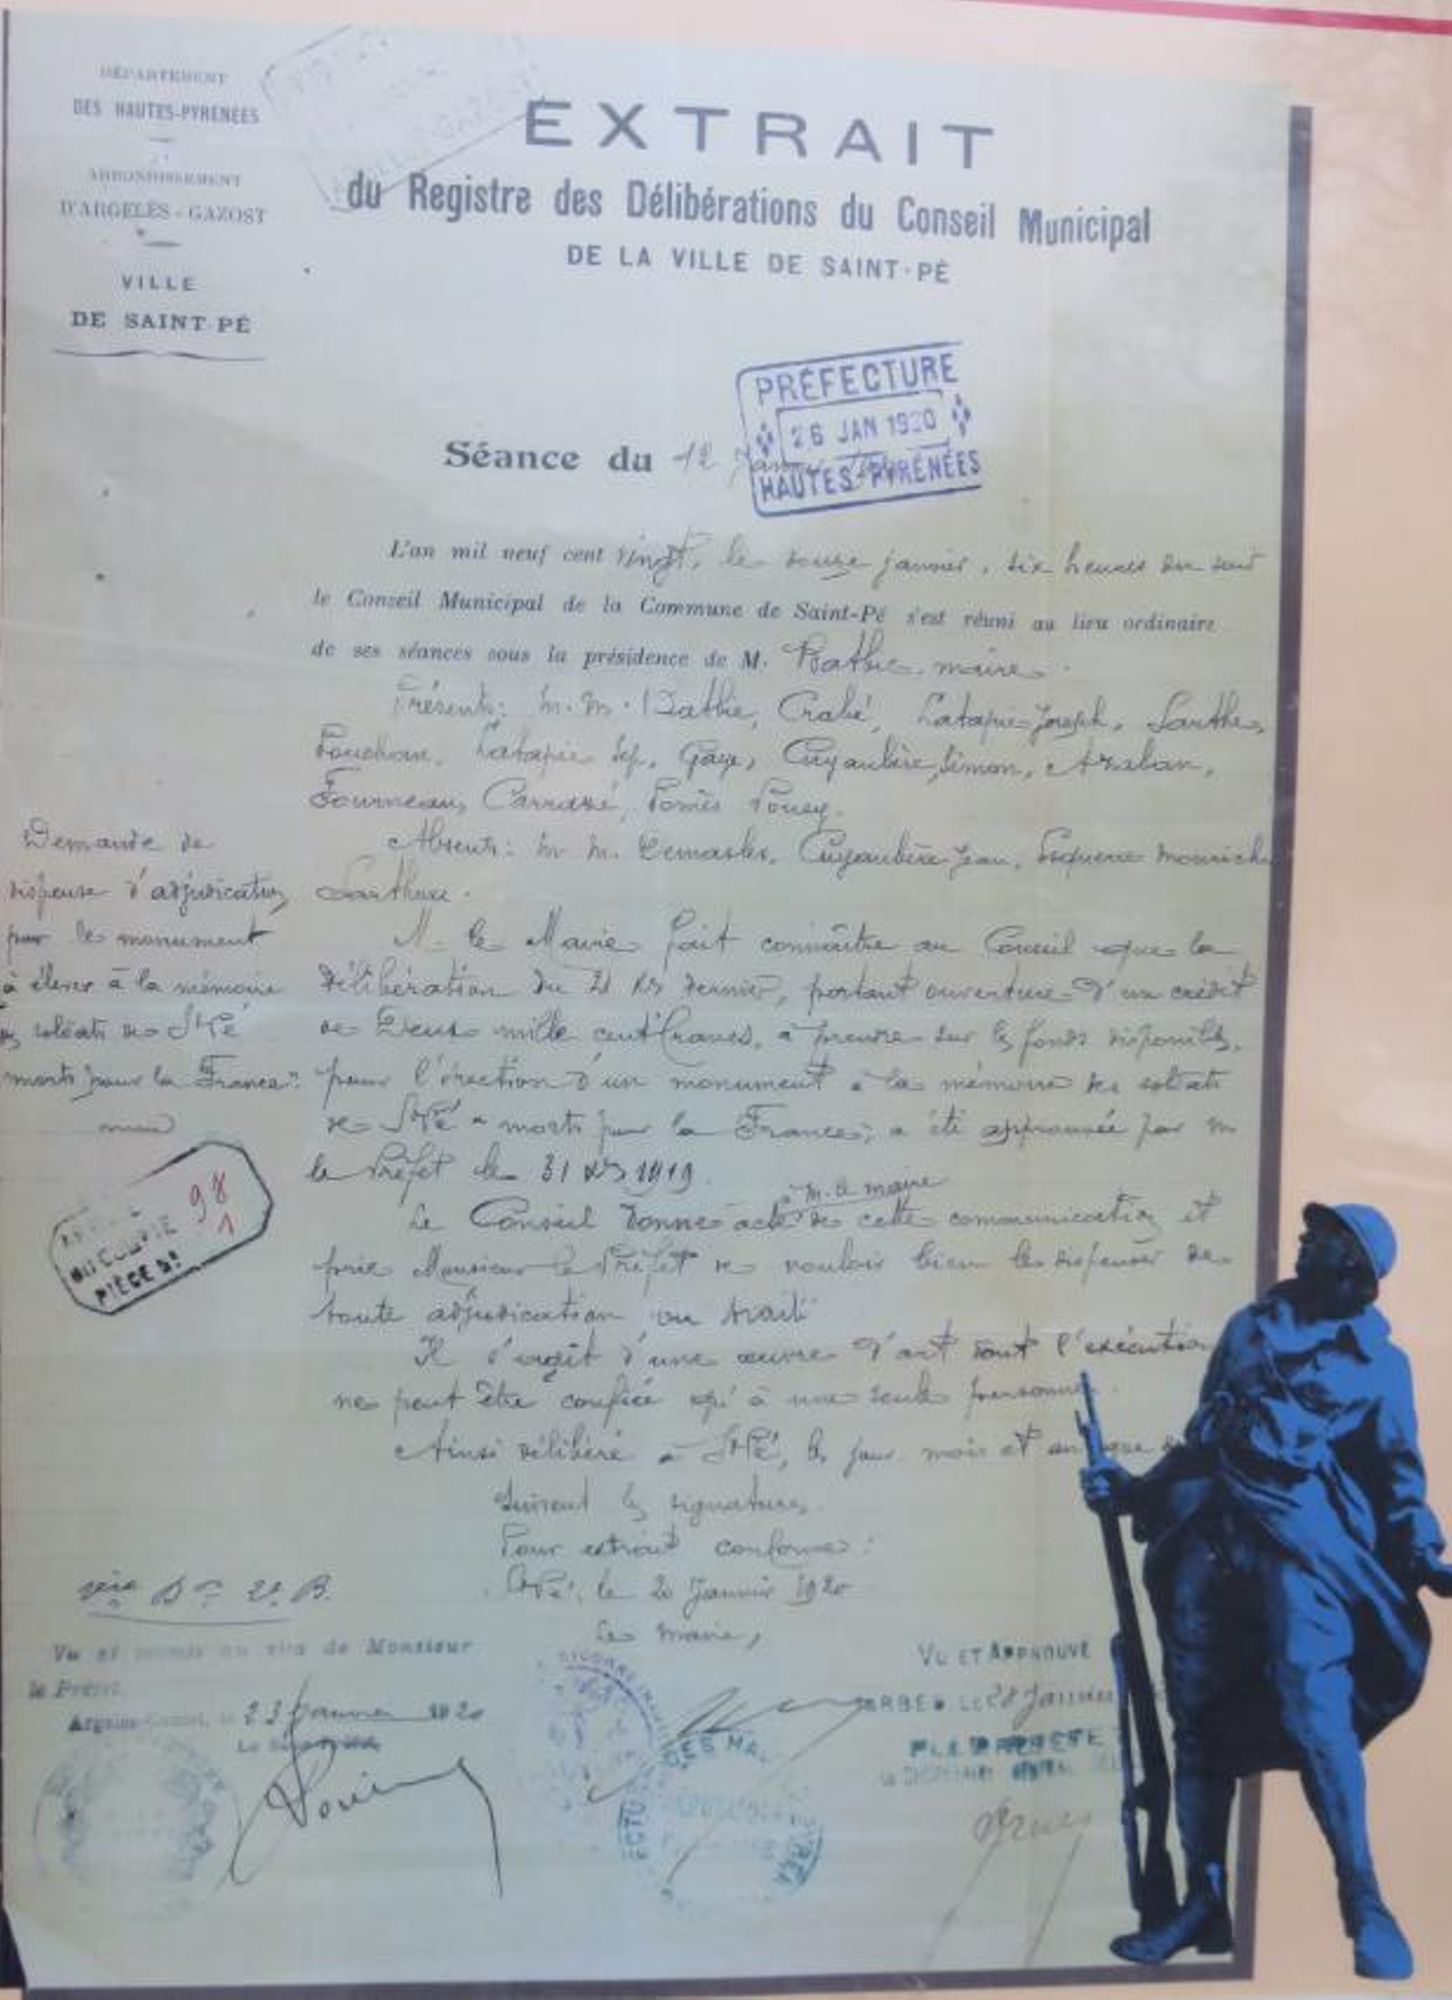 DÉPARTEMENT
DES HAUTES-PYRÉNÉES
ARRONDISSEMENT
D'ARGELÈS-GAZOST
VILLE
DE SAINT-PÉ
EXTRAIT
du Registre des Délibérations du Conseil Municipal
DE LA VILLE DE SAINT-PÉ
PRÉFECTURE
26 JAN 1920
HAUTES-PYRÉNÉES
Séance du 12
L'an mil neuf cent vingt, le douze janvier, six heures du soir
le Conseil Municipal de la Commune de Saint-Pé s'est réuni au lieu ordinaire
de ses séances sous la présidence de M. Bathie, maire.
Présents: M.M. Bathie, Crabé, Latapie Joseph, Lanthe,
Latapie Gaye, Cuyaubère Simon, Azalan,
Fourneau, Carrazé, Pomès Pouey.
Absents: M.M. Cuyaubère Jean,
Demande de
dispense d'adjudication
pour le monument
à élever à la mémoire
soldats de St Pé
morts pour la France"
M. le Maire fait connaître au Conseil que la
délibération du 21 Xbre dernier, portant ouverture d'un crédit
de Deux mille cent francs, à prendre sur les fonds disponibles,
pour l'érection d'un monument à la mémoire des soldats
de St Pé "morts pour la France", a été approuvée par M
le Préfet le 31 Xbre 1919.
Le Conseil donne acte à M. le maire de cette communication et
prie Monsieur le Préfet de vouloir bien les dispenser de
toute adjudication ou traité
Il s'agit d'une œuvre d'art dont l'exécution
ne peut être confiée qu'à une seule personne.
Ainsi délibéré à St Pé, les jour, mois et an que
Suivent les signatures
Pour extrait conforme:
St Pé, le 20 Janvier 1920
Le Maire,
DU COMPTE
PIÈCE N°
98
1
Vu et de Monsieur
le Préfet
23 Janvier 1920
VU ET APPROUVÉ
TARBES LE 28 Janvier